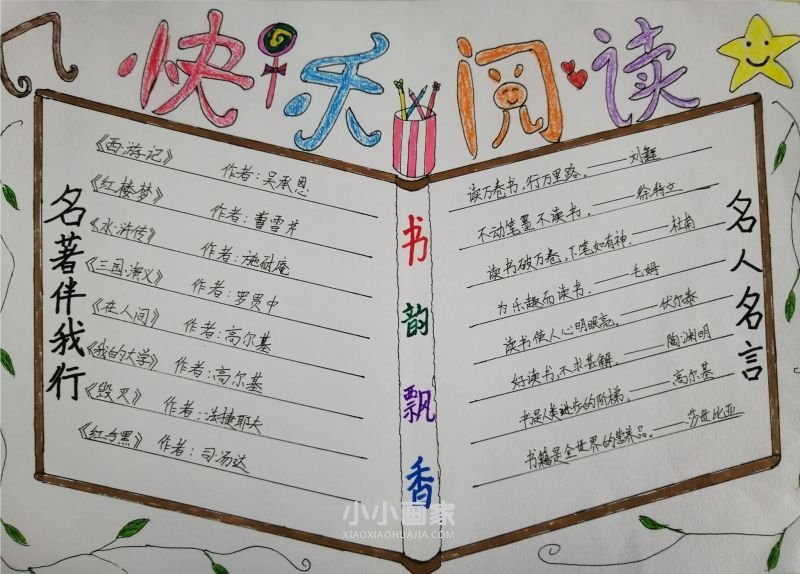 快乐阅读
名著伴我行
《西游记》 作者:吴承恩
《红楼梦》 作者:曹雪芹
《水浒传》 作者:施耐庵
《三国演义》 作者:罗贯中
《在人间》 作者:高尔基
《我的大学》 作者:高尔基
《毁灭》 作者:法捷耶夫
《红与黑》 作者:司汤达
书韵飘香
读万卷书,行万里路。——刘彝
不动笔墨不读书。——徐特立
读书破万卷,下笔如有神。——杜甫
为乐趣而读书。——毛姆
读书使人心明眼亮。——伏尔泰
好读书,不求甚解。——陶渊明
书是人类进步的阶梯。——高尔基
书籍是全世界的营养品。——莎士比亚
名人名言
小小画家
XIAOXIAOHUAJIA.COM